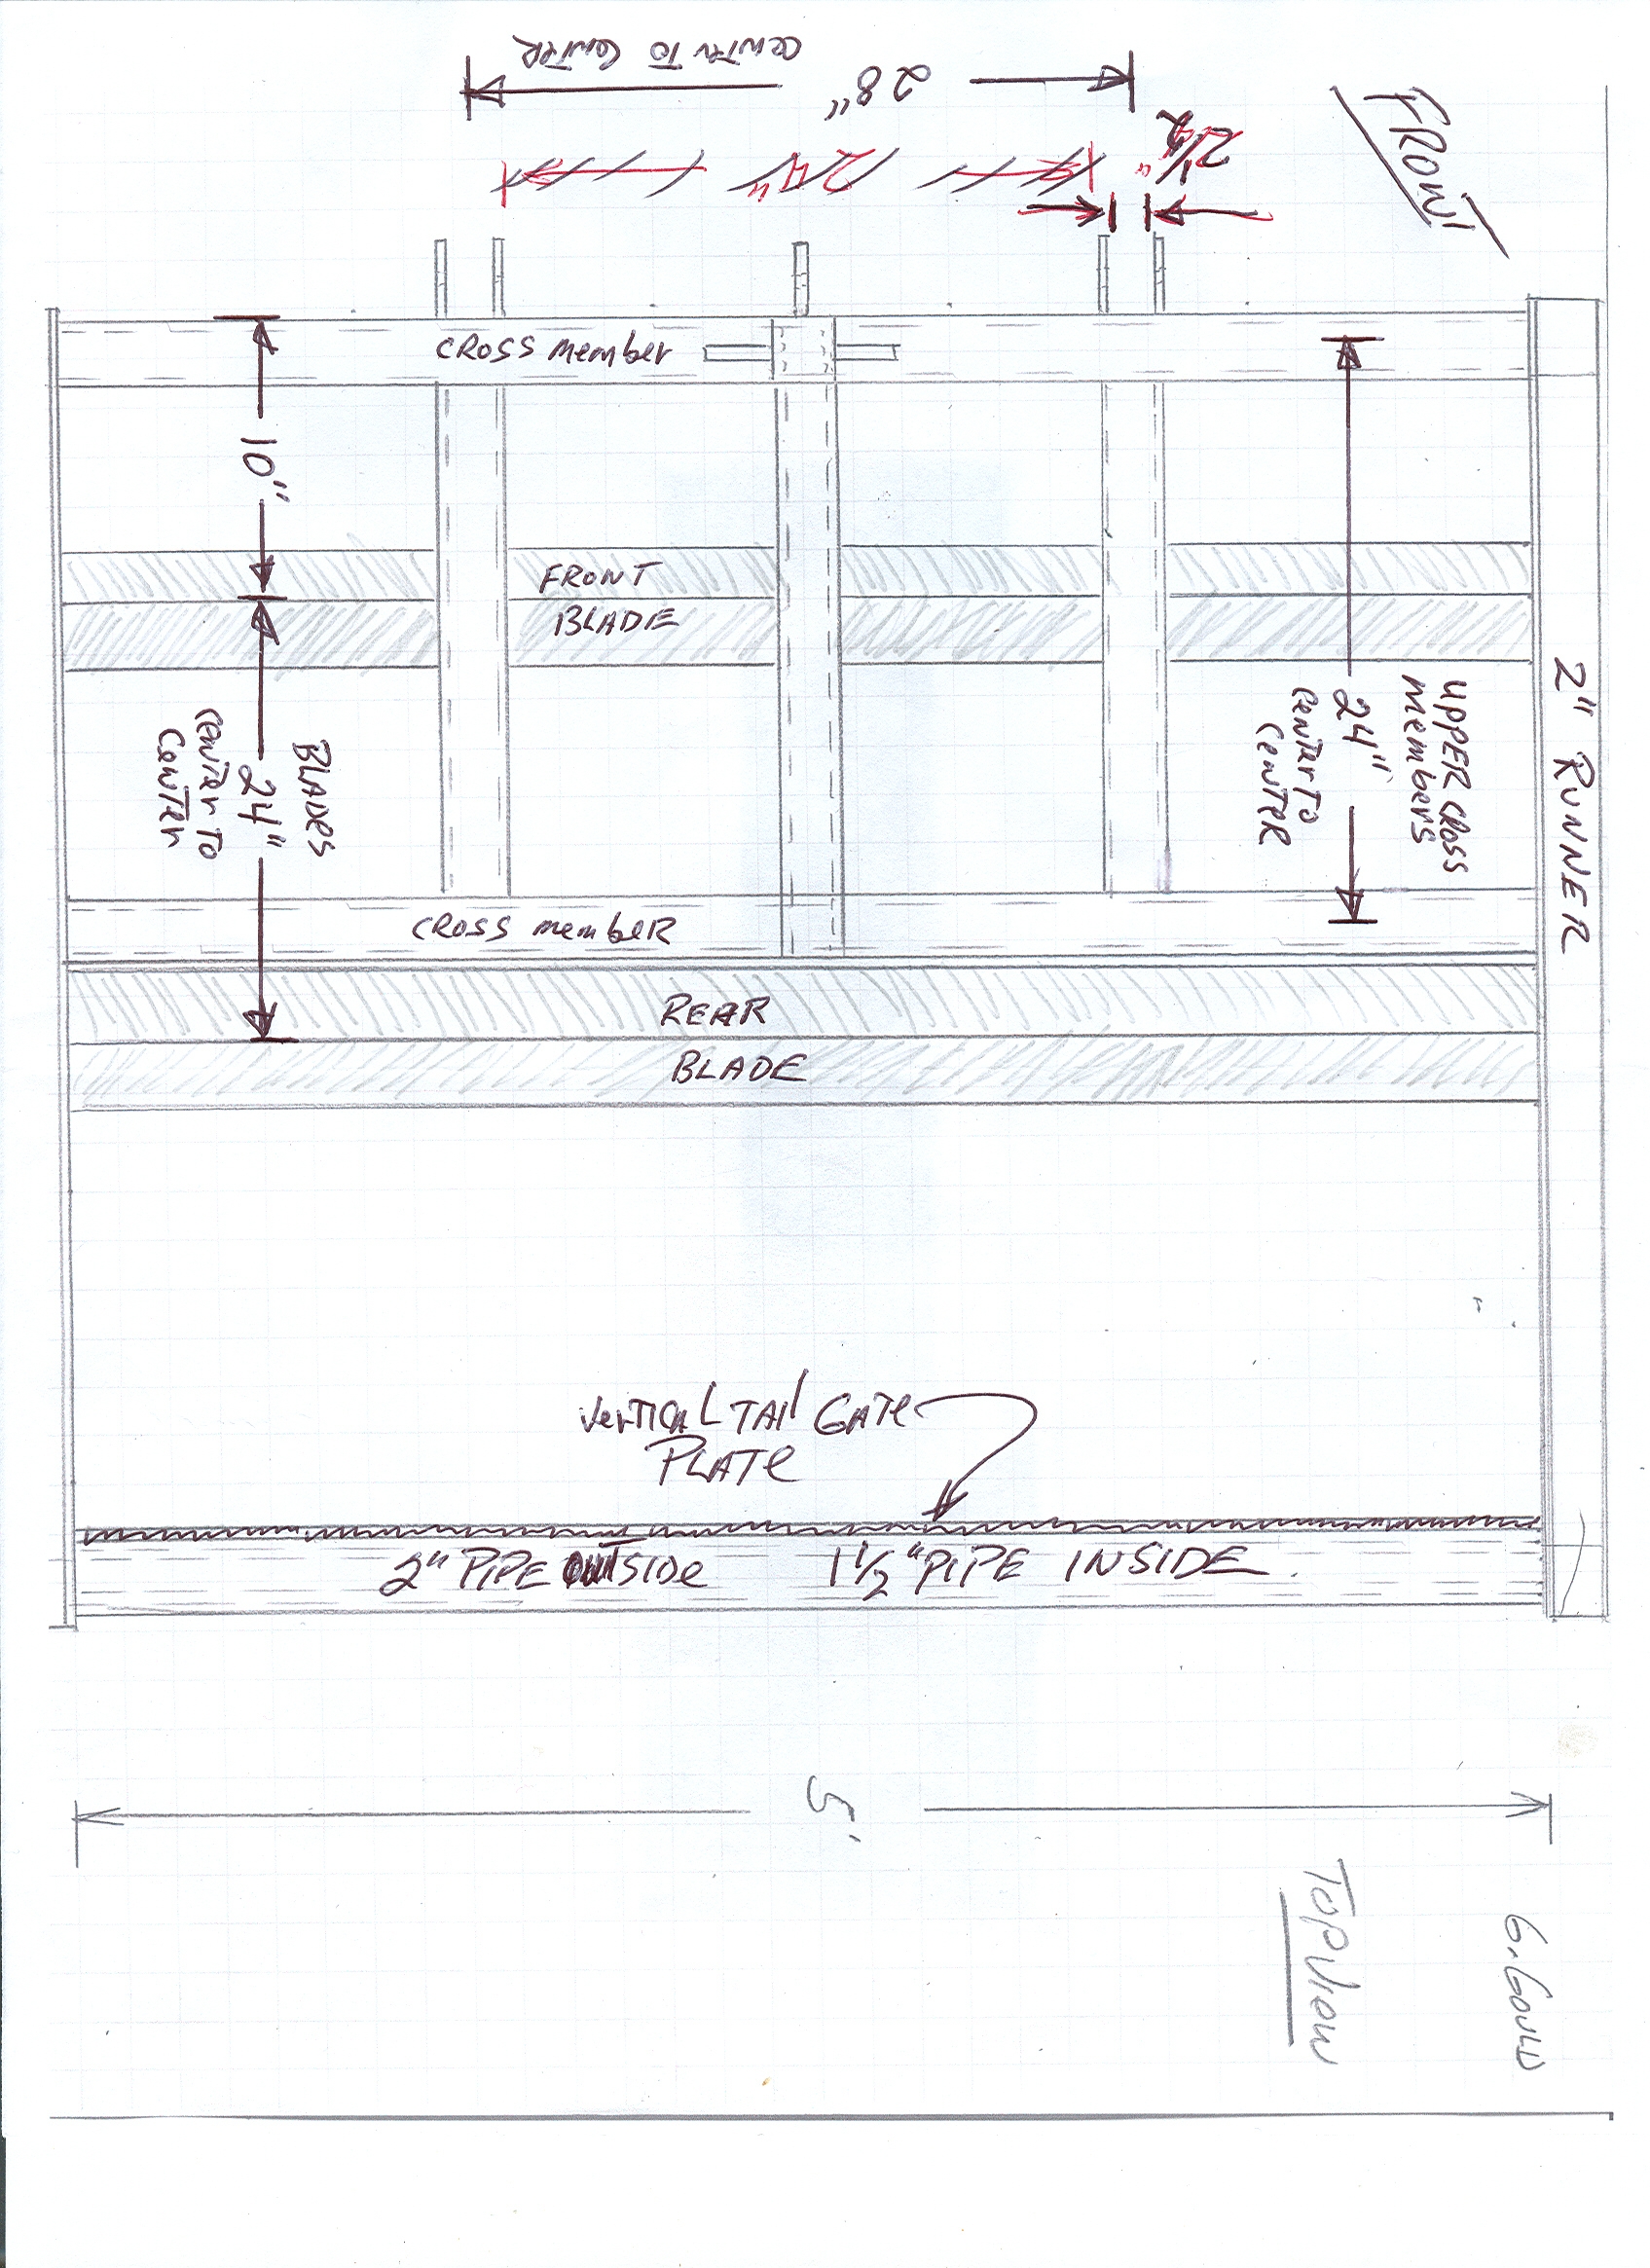 CENTER TO CENTER
28"
24"
2 1/2"
FRONT
CROSS member
10"
FRONT
BLADE
UPPER CROSS
members
24"
CENTER TO
CENTER
2" RUNNER
BLADES
24"
CENTER TO
CENTER
CROSS member
REAR
BLADE
VERTICAL TAIL GATE
PLATE
2" PIPE OUTSIDE 1 1/2" PIPE INSIDE
5'
TOP VIEW
G. GOULD